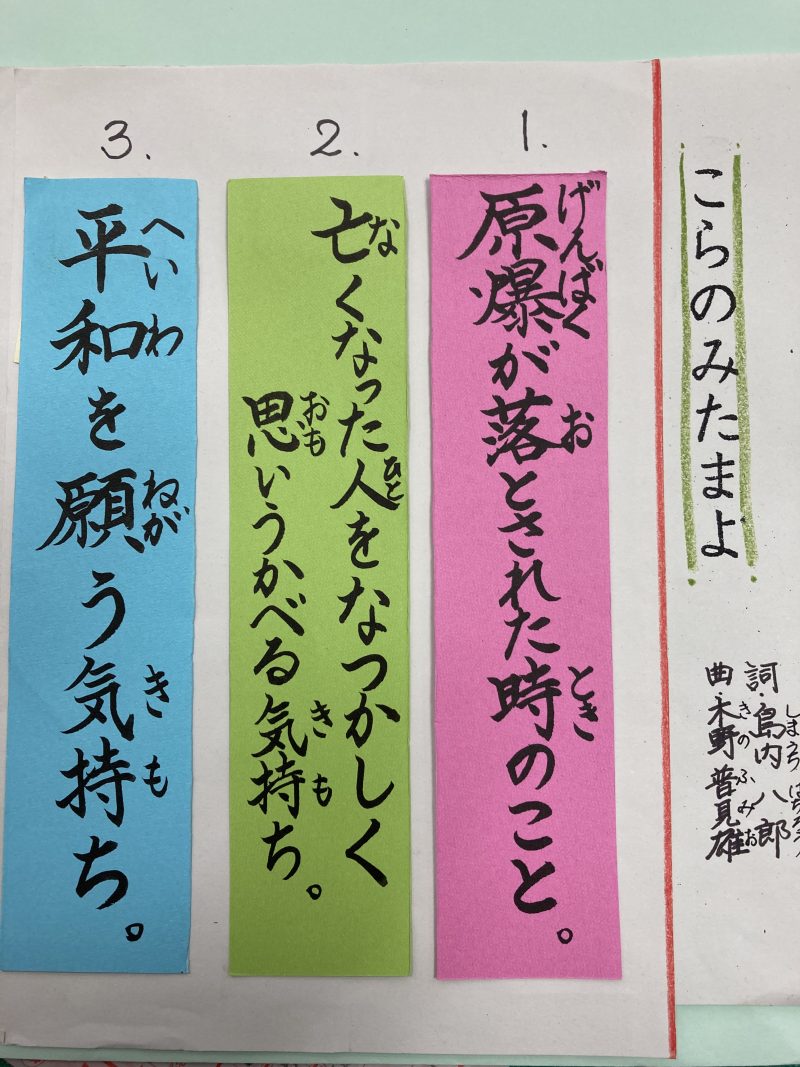 こらのみたまよ
詞・島内 八郎
しまうち はちろう
曲・木野 普見雄
きの ふみお
1.
原爆が落とされた時のこと。
げんばく お とき
2.
亡くなった人をなつかしく
な ひと
思いうかべる気持ち。
おも き も
3.
平和を願う気持ち。
へいわ ねが き も